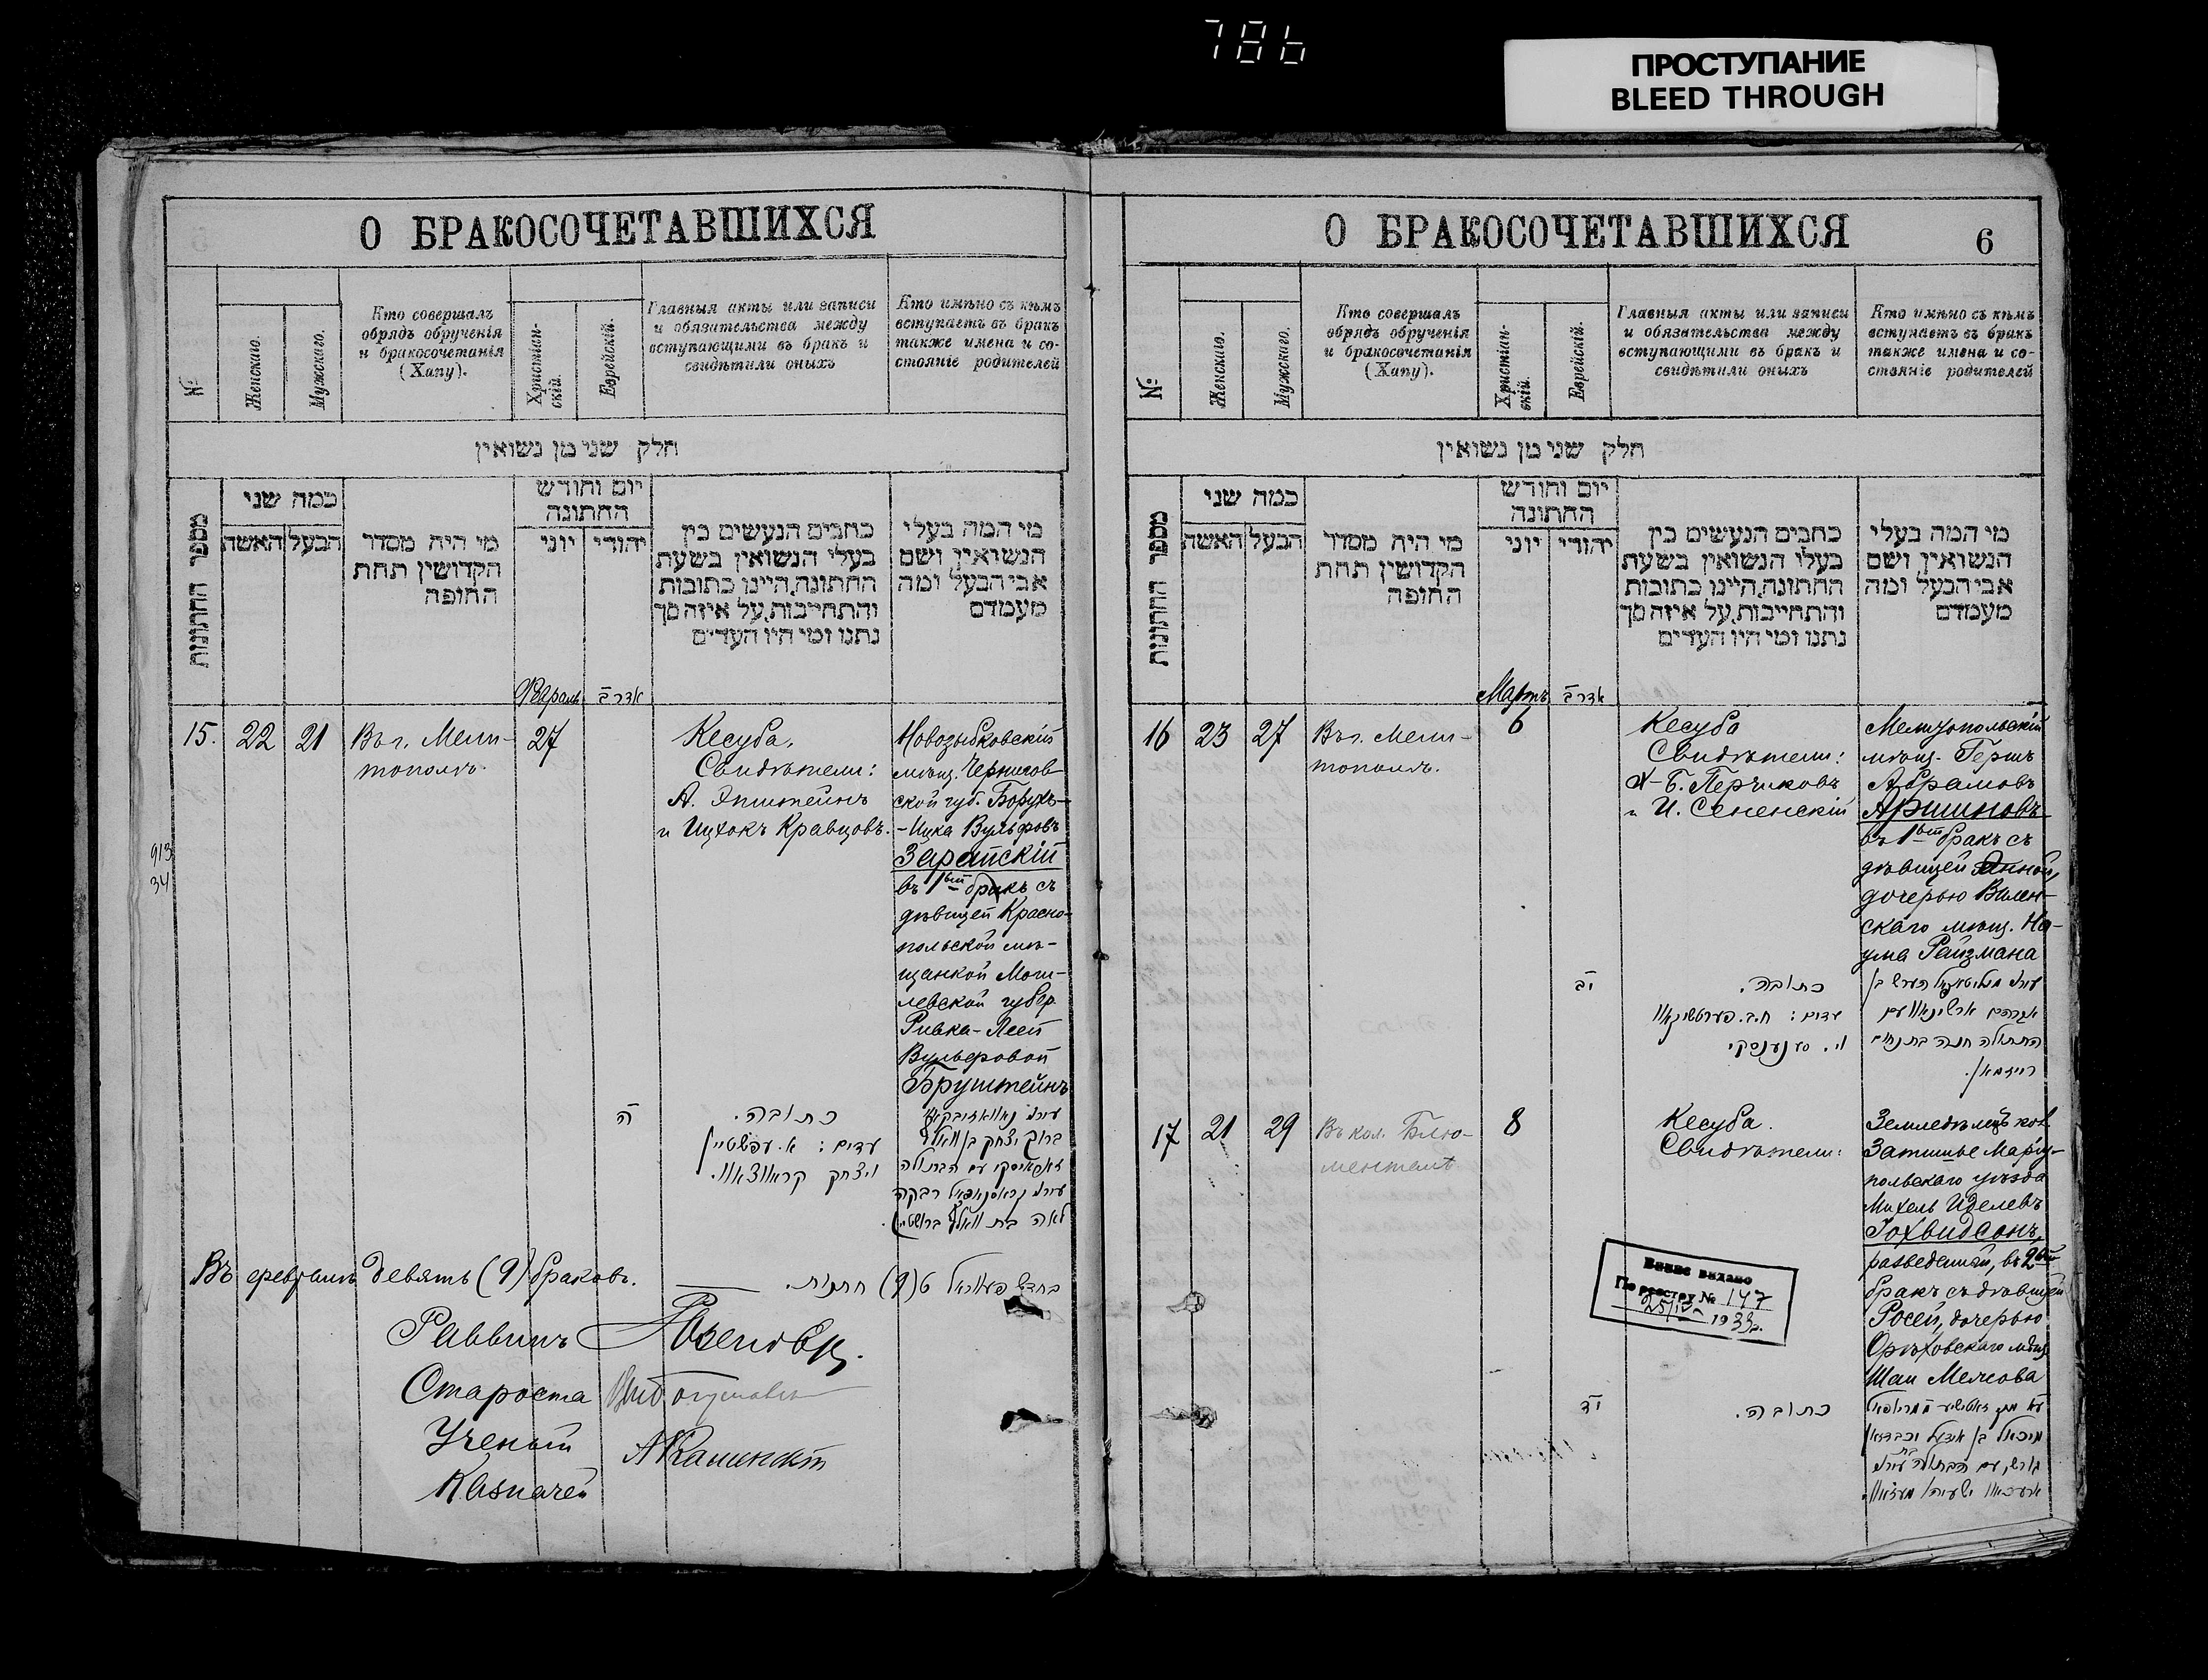 786
ПРОСТУПАНИЕ
BLEED THROUGH
О БРАКОСОЧЕТАВШИХСЯ
№
Женскаго.
Мужскаго.
Кто совершалъ
обрядъ обрученія
и бракосочетанія
(Хапу).
Христіан-
скій.
Еврейскій.
Главныя акты или записи
и обязательства между
вступающими въ бракъ и
свидѣтили оныхъ
Кто имѣно съ кѣмъ
вступаетъ въ бракъ
также имена и со-
стояніе родителей
חלק שני מן נשואין
מספר החתונות
כמה שני
האשה
הבעל
מי היה מסדר
הקדושין תחת
החופה
יום וחודש
החתונה
יוני
יהודי
כתבים הנעשים בין
בעלי הנשואין בשעת
החתונה, היינו כתובות
והתחייבות, על איזה סך
נתנו ומי היו העדים
מי המה בעלי
הנשואין ושם
אבי הבעל ומה
מעמדם
Февраль
אדר ב
15.
22
21
Въ г. Мели-
тополѣ.
27
Кесуба.
Свидѣтели:
А. Эпштейнъ
и Ицхокъ Кравцовъ.
Новозыбковскій
мѣщ. Чернигов-
ской губ. Борухъ-
-Ицка Вульфовъ
Зарайскій
въ 1ый бракъ съ
дѣвицей Красно-
польской мѣ-
щанкой Моги-
левской губер.
Ривка-Леей
Вульфовой
Бруштейнъ
913
34
ה
כתובה.
עדים: א. עפשטיין
ויצחק קראווצאוו.
ברוך יצחק בן וואלף
עם הבתולה
רבקה
לאה בת וואלף ברושטיין.
Въ февралѣ девять (9) браковъ.
(9) חתונות.
Раввинъ
Староста
Ученый
Казначей
О БРАКОСОЧЕТАВШИХСЯ
6
№
Женскаго.
Мужскаго.
Кто совершалъ
обрядъ обрученія
и бракосочетанія
(Хапу).
Христіан-
скій.
Еврейскій.
Главныя акты или записи
и обязательства между
вступающими въ бракъ и
свидѣтили оныхъ
Кто имѣно съ кѣмъ
вступаетъ въ бракъ
также имена и со-
стояніе родителей
חלק שני מן נשואין
מספר החתונות
כמה שני
האשה
הבעל
מי היה מסדר
הקדושין תחת
החופה
יום וחודש
החתונה
יוני
יהודי
כתבים הנעשים בין
בעלי הנשואין בשעת
החתונה, היינו כתובות
והתחייבות, על איזה סך
נתנו ומי היו העדים
מי המה בעלי
הנשואין ושם
אבי הבעל ומה
מעמדם
Мартъ
אדר ב
16
23
27
Въ г. Мели-
тополѣ.
6
Кесуба
Свидѣтели:
Х-Б. Перчиковъ
и И. Сененскій
Мелитопольскій
мѣщ. Гершъ
Абрамовъ
Аршиновъ
въ 1ый бракъ съ
дѣвицей Анной,
дочерью Вилен-
скаго мѣщ. На-
ума Райзмана
יב
כתובה.
עדים: ח. ב. פערטשיקאוו
וי. סענענסקי
הערש בן
אברהם ארשינאוו עם
הבתולה חנה בת נחום
רייזמאן.
17
21
29
Въ кол. Блю-
менталь
8
Кесуба.
Свидѣтели:
Земледѣлецъ кол.
Затишье Мариу-
польскаго уѣзда
Михель Иделевъ
разведенный, въ 2ой
бракъ съ дѣвицей
Росей, дочерью
Орѣховскаго мѣщ.
יד
כתובה.
עם הבתולה
Випис видано
По реєстру № 147
25/IV 1933 р.